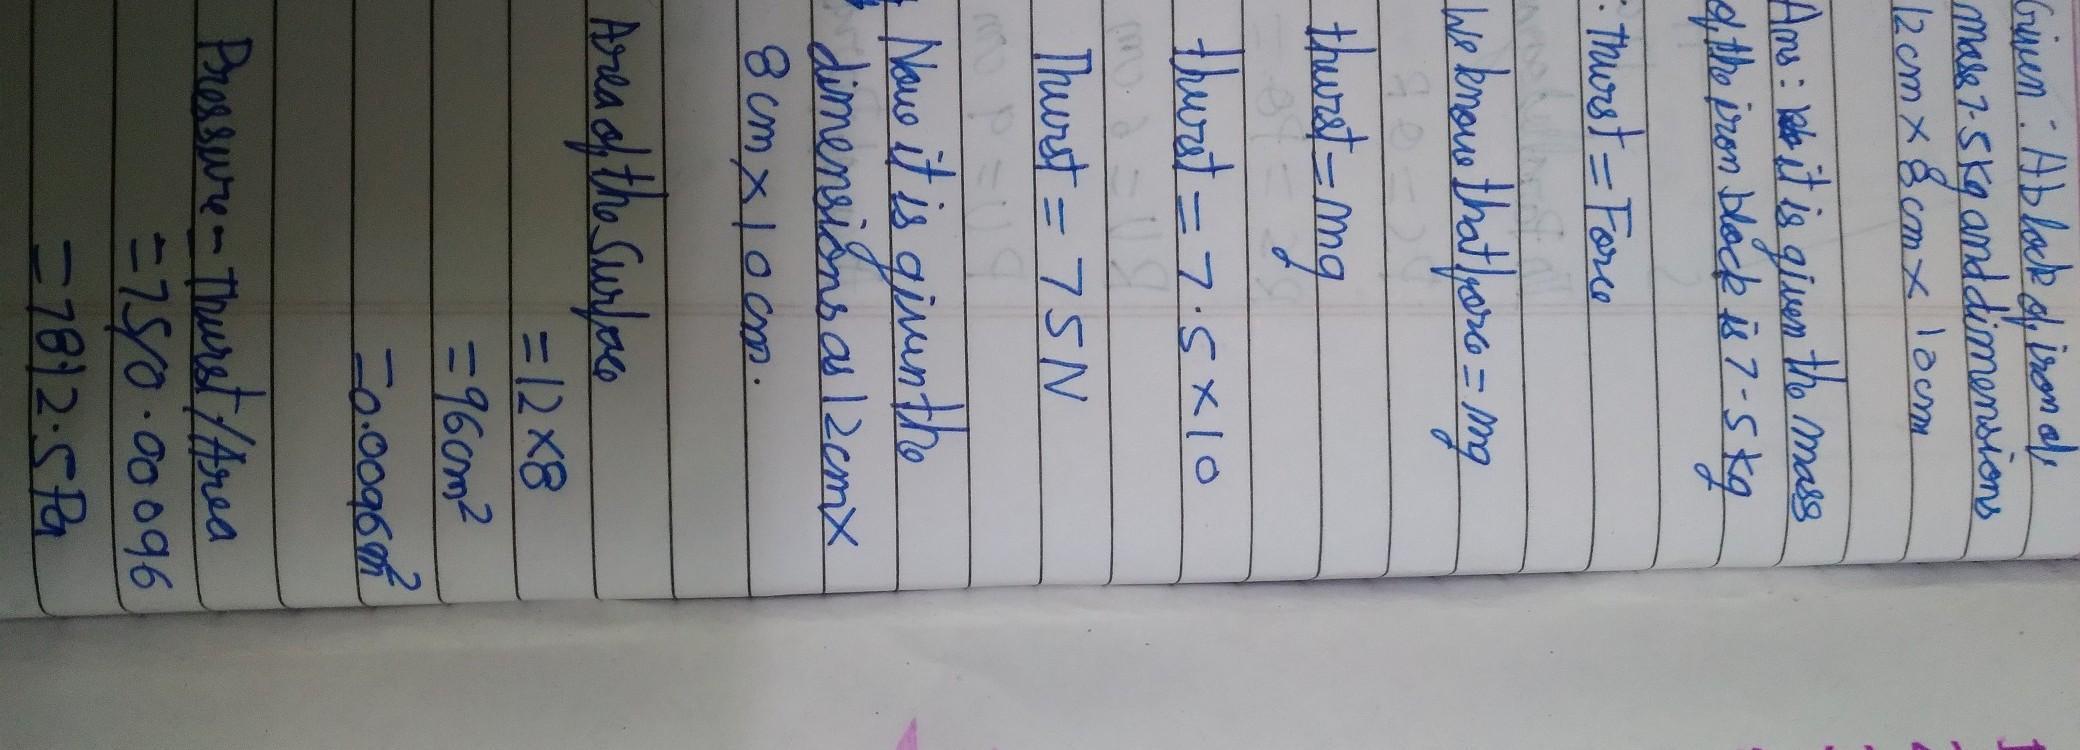 Given : A block of iron of
mass 7.5 kg and dimensions
12cm x 8cm x 10cm
Ans: it is given the mass
of the iron block is 7.5 kg
: thurst = Force
We know that force = mg
thurst = mg
thurst = 7.5 x 10
Thurst = 75N
Now it is given the
dimensions as 12cm x
8 cm x 10 cm.
Area of the Surface
= 12 x 8
= 96 cm²
= 0.0096 m²
Pressure = Thurst/Area
= 75/0.00096
= 7812.5 Pa